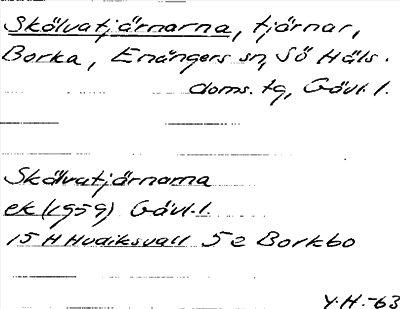 Skälvatjärnarna, tjärnar,
Borka, Enångers sn, Sö Häls.
doms. tg, Gävl. l.
Skälvatjärnarna
ek (1959) Gävl. l.
15 H Hudiksvall 5 e Borkbo
Y.H.-63